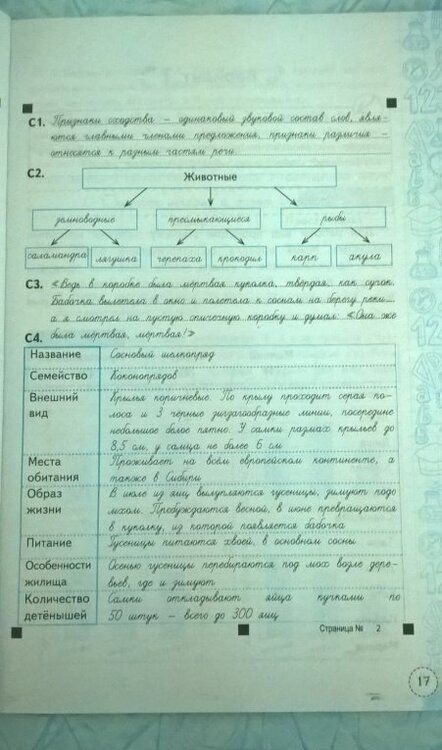 С1. Признаки сходства – одинаковый звуковой состав слов, явля-
ются главными членами предложения, признаки различия –
относятся к разным частям речи
С2.
Животные
земноводные пресмыкающиеся рыбы
саламандра лягушка черепаха крокодил карп акула
С3. «Ведь в коробке была мёртвая куколка, твёрдая, как сучок.
Бабочка вылетела в окно и полетела к соснам на берегу реки...,
а я смотрел на пустую спичечную коробку и думал: «Она же
была мёртвая, мёртвая!»
С4.
Название Сосновый шелкопряд
Семейство Коконопрядов
Внешний Крылья коричневые. По крылу проходит серая по-
вид лоса и 3 чёрные зигзагообразные линии, посередине
небольшое белое пятно. У самки размах крыльев до
8,5 см, у самца не более 6 см
Места Проживает на всём европейском континенте, а
обитания также в Сибири
Образ В июле из яиц вылупляются гусеницы, зимуют подо
жизни мхом. Пробуждаются весной, в июне превращаются
в куколку, из которой появляется бабочка
Питание Гусеницы питаются хвоей, в основном сосны
Особенности Осенью гусеницы перебираются под мох возле дере-
жилища вьев, где и зимуют
Количество Самки откладывают яйца кучками по
детёнышей 50 штук – всего до 300 яиц
Страница № 2
17